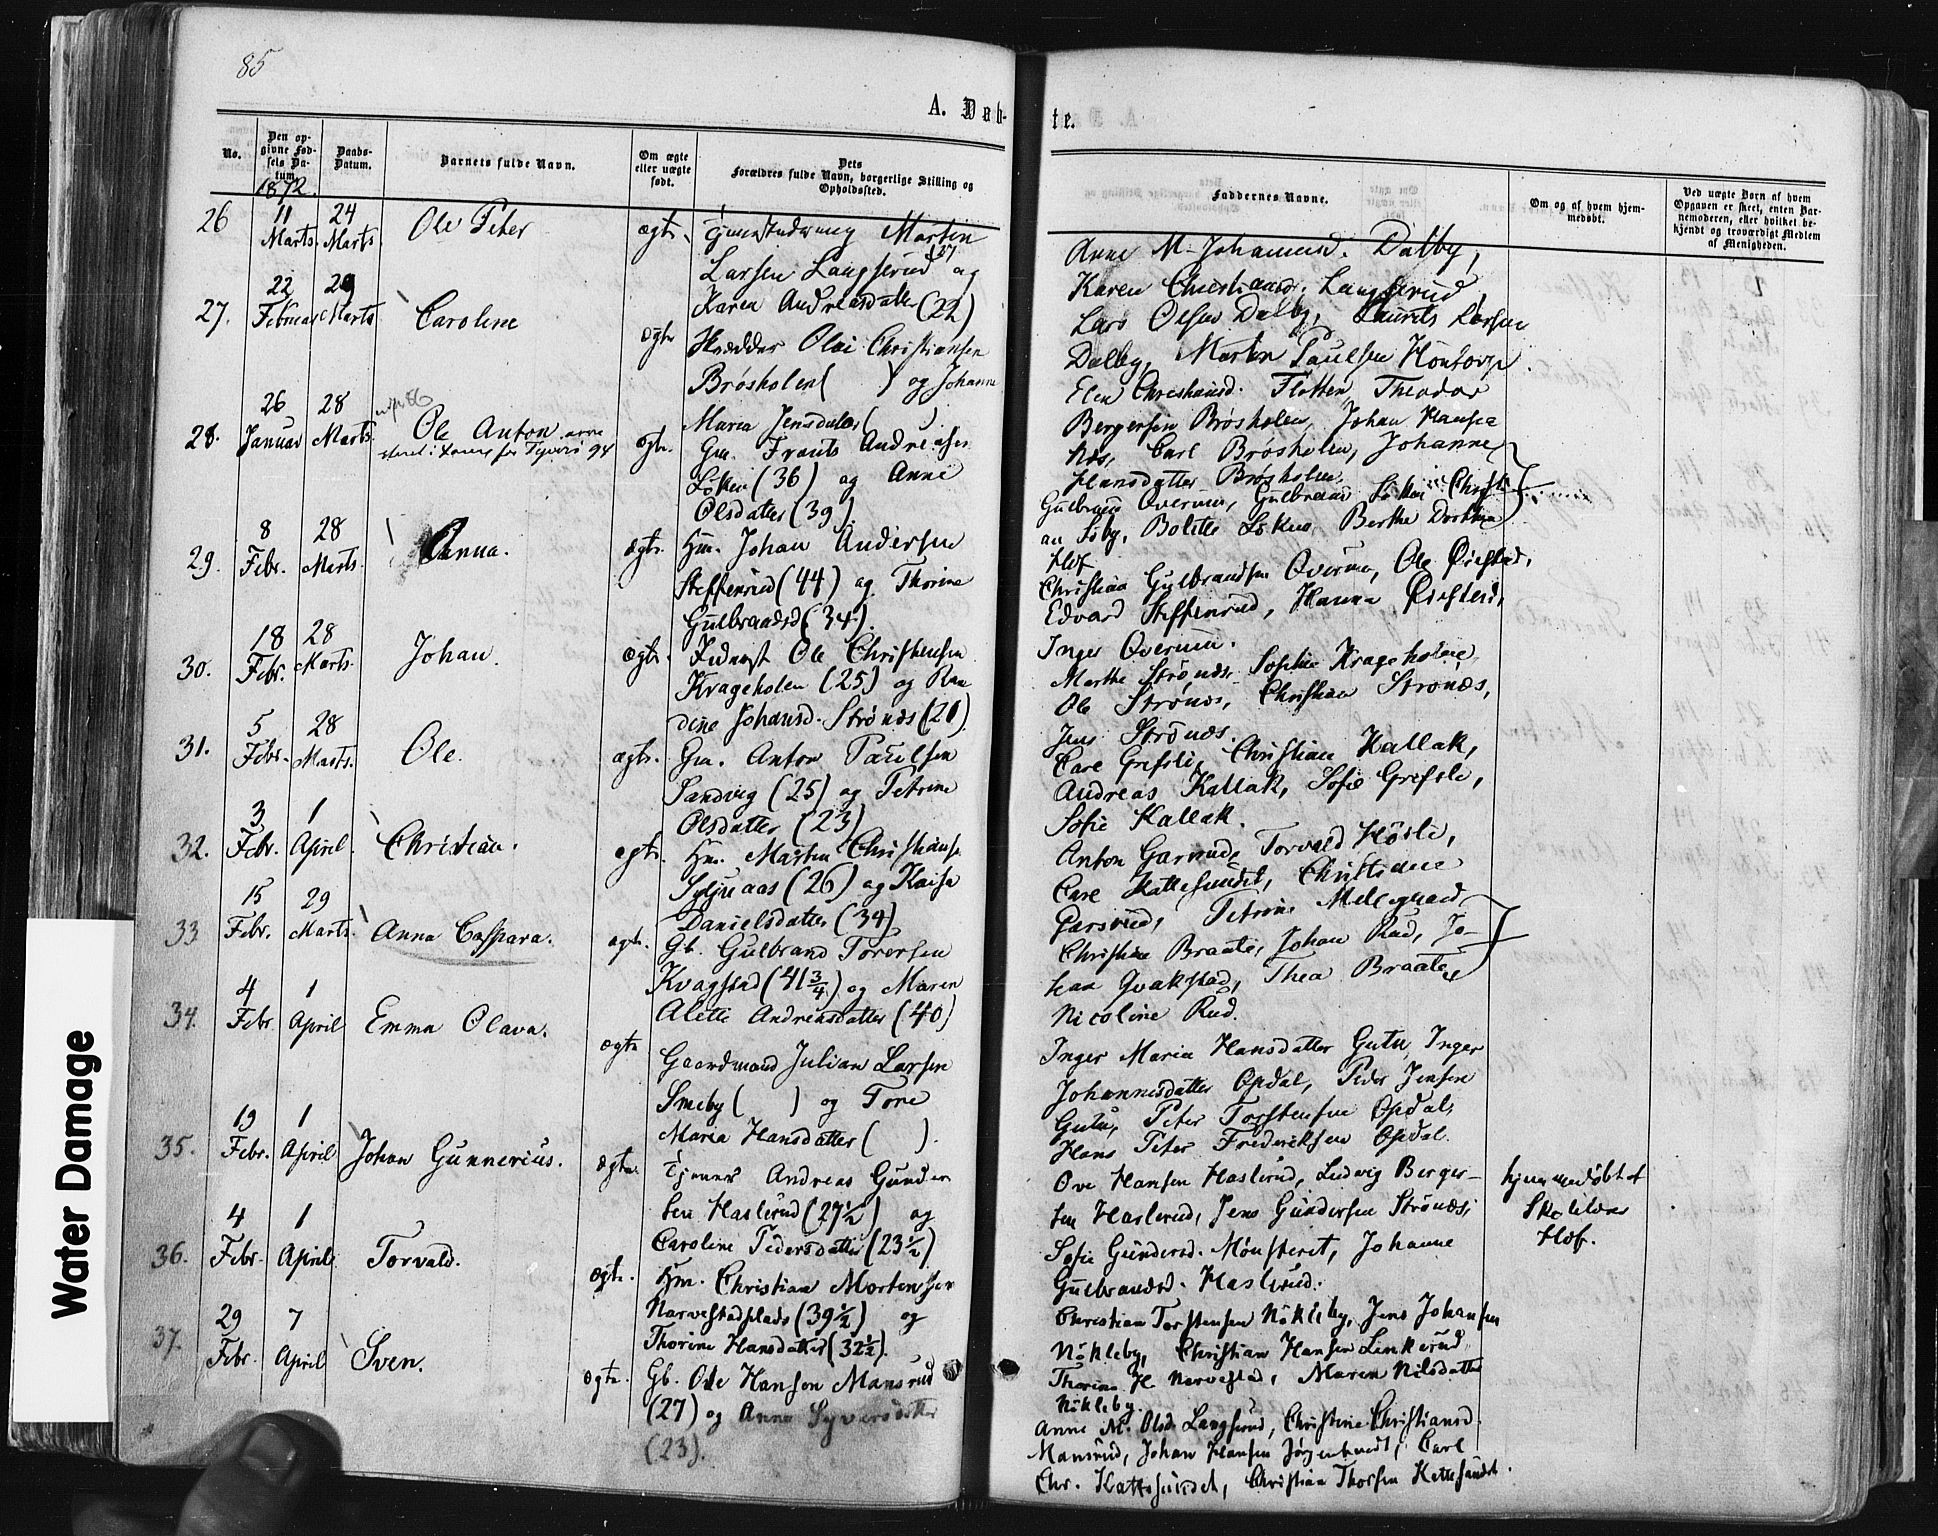 85
A. Døb-
te.
No.
Den op-
givne Fød-
sels Da-
tum.
1872.
Daabs-
Datum.
Barnets fulde Navn.
Om ægte
eller uægte
født.
Dets
Forældres fulde Navn, borgerlige Stilling og
Opholdssted.
Faddernes Navne.
Om og af hvem hjem-
medøbt.
Ved uægte Børn af hvem
Opgaven er skeet, enten Bar-
nemoderen, eller hvilket be-
kjendt og troværdigt Medlem
af Menigheden.
26
11 Marts
24 Marts
Ole Peter
ægte
Martin
Larsen Langserud og
Karen Andreasdatter (22)
27.
22 Februar
29 Marts
Caroline
ægte
Olai Christiansen
Brøsholen ( ) og Johanne
Maria Jensdatter ( )
28.
26 Januar
28 Marts
Ole Anton
ægte.
Gm. Frants Andreasen
Løken (36) og Anne
Olsdatter (39)
29.
8 Febr.
28 Marts.
Anna.
ægte.
Hm. Johan Andersen
Steffensrud (44) og Thorine
Gulbrandsd (34).
30.
18 Febr.
28 Marts.
Johan.
ægte.
Inderst Ole Christensen
Krageholen (25) og Ran
dine Johansd. Strønæs (21)
31.
5 Febr.
28 Marts.
Ole.
ægte.
Gm. Anton Paulsen
Sandvig (25) og Petrine
Olsdatter (23)
32.
3 Febr.
1 April.
Christian.
ægte.
Hm. Martin Christians.
(26) og Kaisa
Danielsdatter (34)
33
15 Febr.
29 Marts.
Anna Caspara.
ægte.
Gb. Gulbrand Torersen
Kvagstad (41 3/4) og Maren
Alette Andreasdatter (40)
34.
4 Febr.
1 April
Emma Olava.
ægte
Gaardmand Julian Larsen
Smeby ( ) og Tore
Maria Hansdatter ( ).
35.
19 Febr.
1 April
Johan Gunnerius.
ægte.
Tjener Andreas Gunder
sen Haslerud (27½) og
Caroline Pedersdatter (23½)
36.
4 Febr.
1 April
Torvald.
ægte.
Hm. Christian Mortensen
Narvestadplads (39½) og
Thorine Hansdatter (32½).
37.
29 Febr.
7 April
Sven.
ægte.
Gb. Ole Hansen Mansrud
(27) og Anne Syversdatter
(23).
Anne M. Johannesd. Dalby,
Karen Christiansd. Langserud,
Lars Olsen Dalby, Laurits Larsen
Dalby, Martin Paulsen
Elen Christiansd. Flotten, Theodor
Bergersen Brøsholen, Johan Hansen
Næs, Carl Brøsholen, Johanne
Hansdatter Brøsholen.
Gulbrand Overnn, Gulbrand Løken, Christi
an Søby, Bolette Løken, Berthe Dorthea
Hof
Christian Gulbrandsen Ovérnn, Ole
Edvard Steffensrud, Hanna
Inger
Marthe Strønæs, Sophie Krageholen,
Ole Strønæs, Christian Strønæs,
Jens Strønæs.
Carl Grefsli, Christian Kallak,
Andreas Kallak, Sofie Grefsli,
Sofie Kallak.
Anton Garsrud, Torvald Høsli,
Carl Kattesundet, Christiane
Garsrud, Petrine Mellegaard
Christian Braate, Johan Rud, Jo-
han Qvakstad, Thea Braaten
Nicoline Rud.
Inger Maria Hansdatter Gutu, Inger
Johannesdatter Opdal, Peder Jensen
Gutu, Peter Torstensen Opdal,
Hans Peter Fredriksen Opdal.
Ove Hansen Haslerud, Ludvig Berger-
sen Haslerud, Jens Gundersen Strønæs,
Sofie Gundersd. Mønsteret, Johanne
Gulbrandsd. Haslerud.
Christian Torstensen Nökleby, Jens Johansen
Nökleby, Christian Hansen Linkerud
Thorine H. Narvestad, Maren Nilsdatter
Nökleby.
Anne M. Olsd. Langserud, Christine Christiansd.
Mansrud, Johan Hansen Jørgentvedt, Carl
Chr. Kattesundet, Christian Thorsen Kattesundet.
hjemmedøbt af
Skolelærer
Hof.
Water Damage